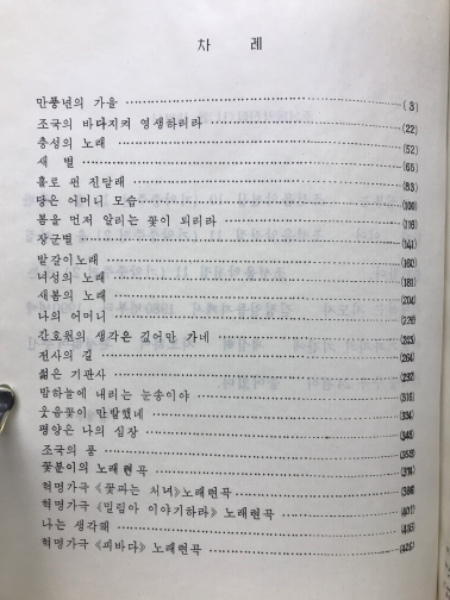 차 례
만풍년의 가을 (3)
조국의 바다지켜 영생하리라 (22)
충성의 노래 (52)
새 별 (65)
홀로 핀 진달래 (83)
당은 어머니 모습
봄을 먼저 알리는 꽃이 되리라 (116)
장군별 (141)
밭갈이노래 (160)
녀성의 노래 (181)
새봄의 노래 (204)
나의 어머니
간호원의 생각은 깊어만 가네
전사의 길 (264)
젊은 기관사 (292)
말하늘에 내리는 눈송이야
웃음꽃이 만발했네 (334)
평양은 나의 심장 (345)
조국의 품
꽃분이의 노래 련곡
혁명가극 《꽃파는 처녀》노래련곡 (386)
혁명가극 《밀림아 이야기하라》 노래련곡 (401)
나는 생각해
혁명가극 《피바다》 노래련곡 (425)